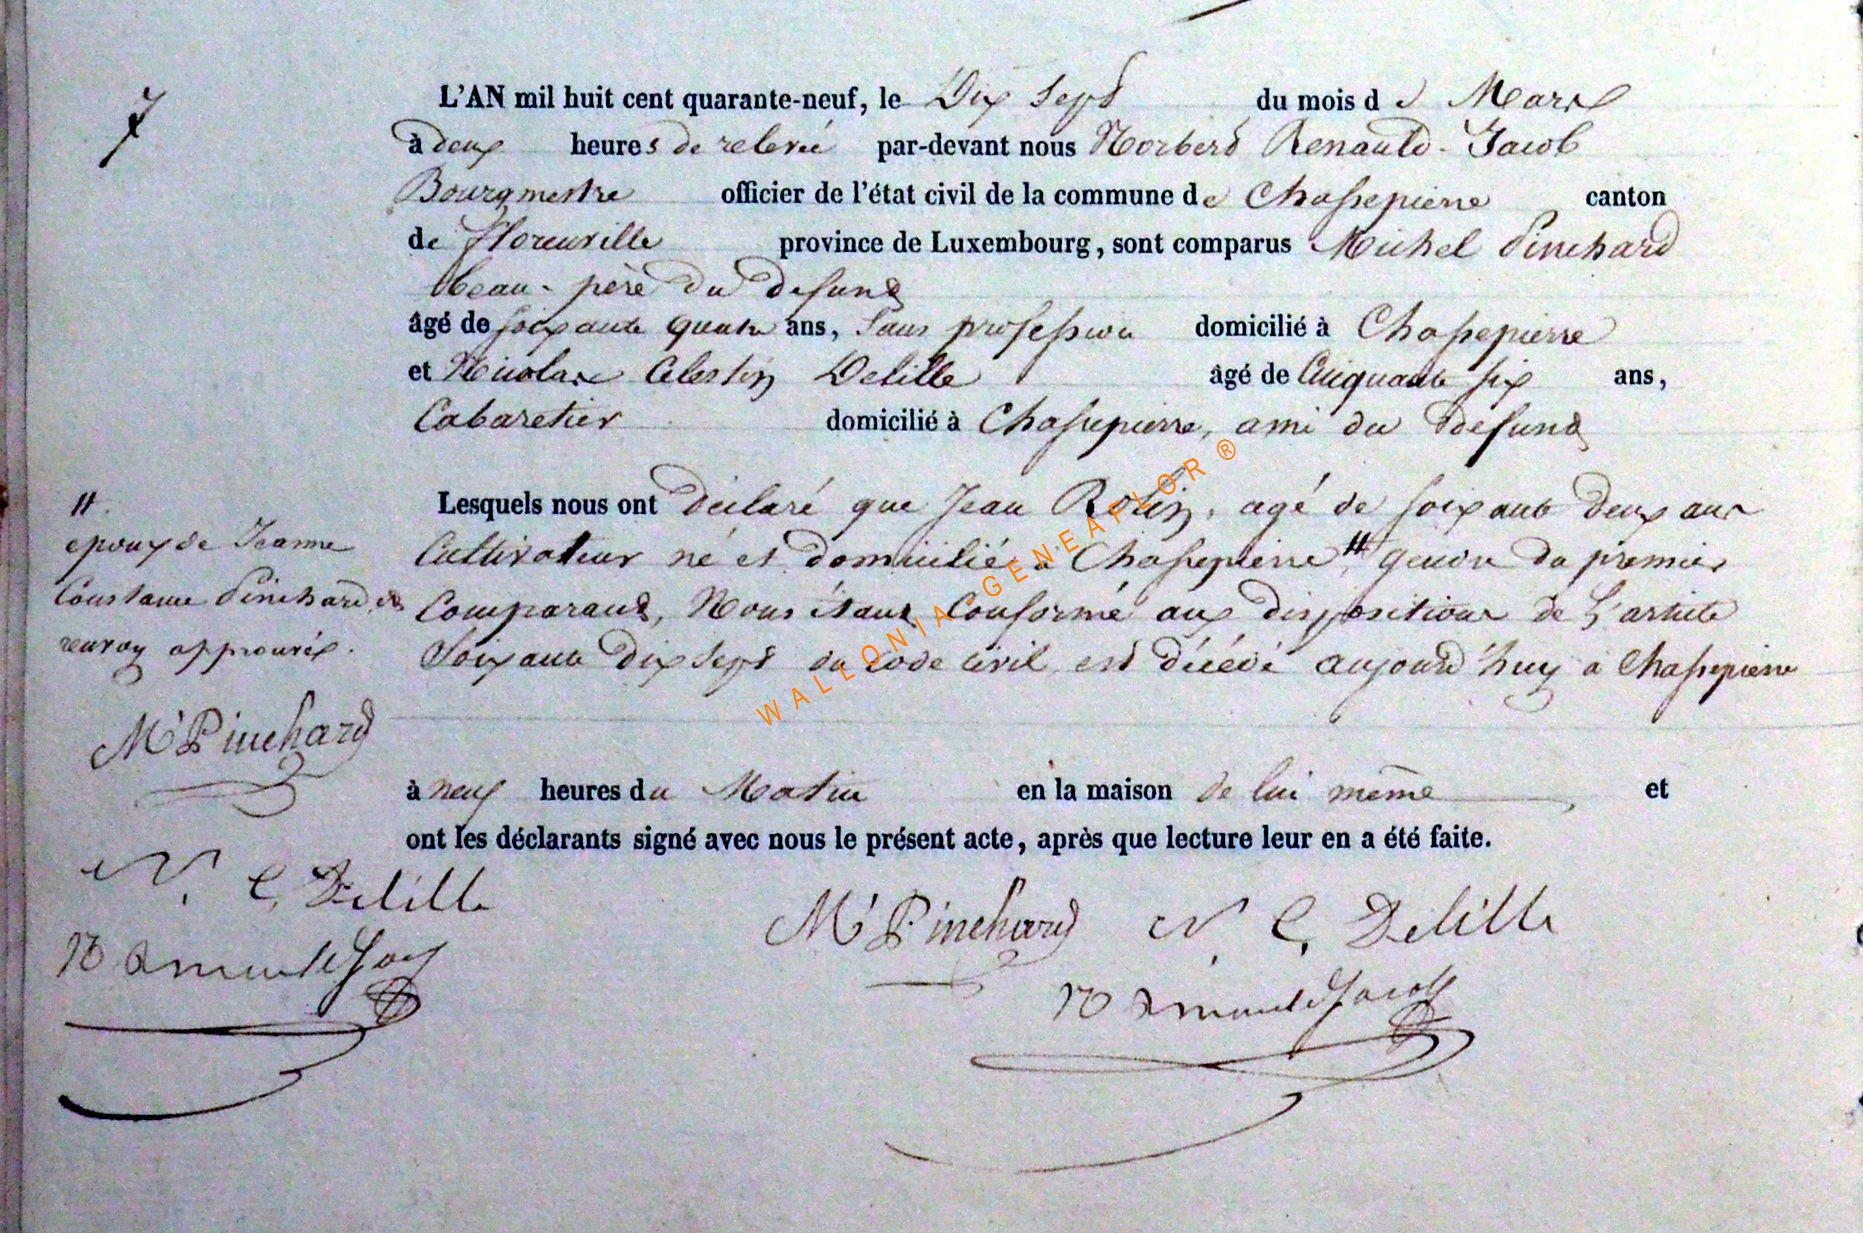 7
L'AN mil huit cent quarante-neuf, le Dix Sept du mois de Mars
à deux heures de relevée par-devant nous Norbert Renauld-Jacob
Bourgmestre officier de l'état civil de la commune de Chassepierre canton
de florenville province de Luxembourg, sont comparus Michel Pinchard
beau-père du defunt
âgé de soixante quatre ans, Sans profession domicilié à Chassepierre
et Nicolas Celestin Delille âgé de Cinquante six ans,
Cabaretier domicilié à Chassepierre, ami du defunt
Lesquels nous ont déclaré que Jean Robin, agé de soixante deux ans
Cultivateur né et domicilié a Chassepierre # gendre du premier
Comparant, Nous étant Conformé aux dispositions de L'article
Soixante Dix Sept du Code Civil, est décédé aujourd'huy a Chassepierre
à neuf heures du Matin en la maison de lui même et
ont les déclarants signé avec nous le présent acte, après que lecture leur en a été faite.
M Pinchard N. C. Delille
#
epoux de Jeanne
Constance Pinchard, et
renvoy approuvés.
M Pinchard
N. C. Delille
WALLONIA-GENEAFLOR ®